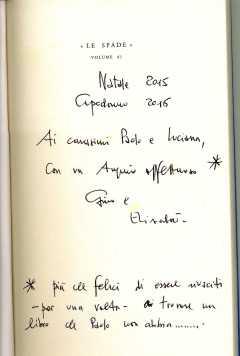 « LE SPADE »
VOLUME 41
Natale 2015
Capodanno 2016
Ai carissimi Paolo e Luciana,
Con un Augurio affettuoso *
Gino e
Elisabetta.
* più che felici di essere riusciti
- per una volta - a trovare un
libro che Paolo non abbia........